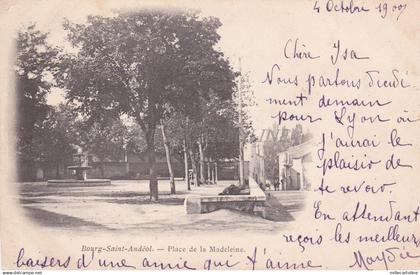 4 Octobre 1900
Chère Isa
Nous partons décidé
ment demain
pour Lyon où
j'aurai le
plaisir de
te revoir
En attendant
reçois les meilleurs
baisers d'une amie qui t'aime
Bourg-Saint-Andéol. — Place de la Madeleine.